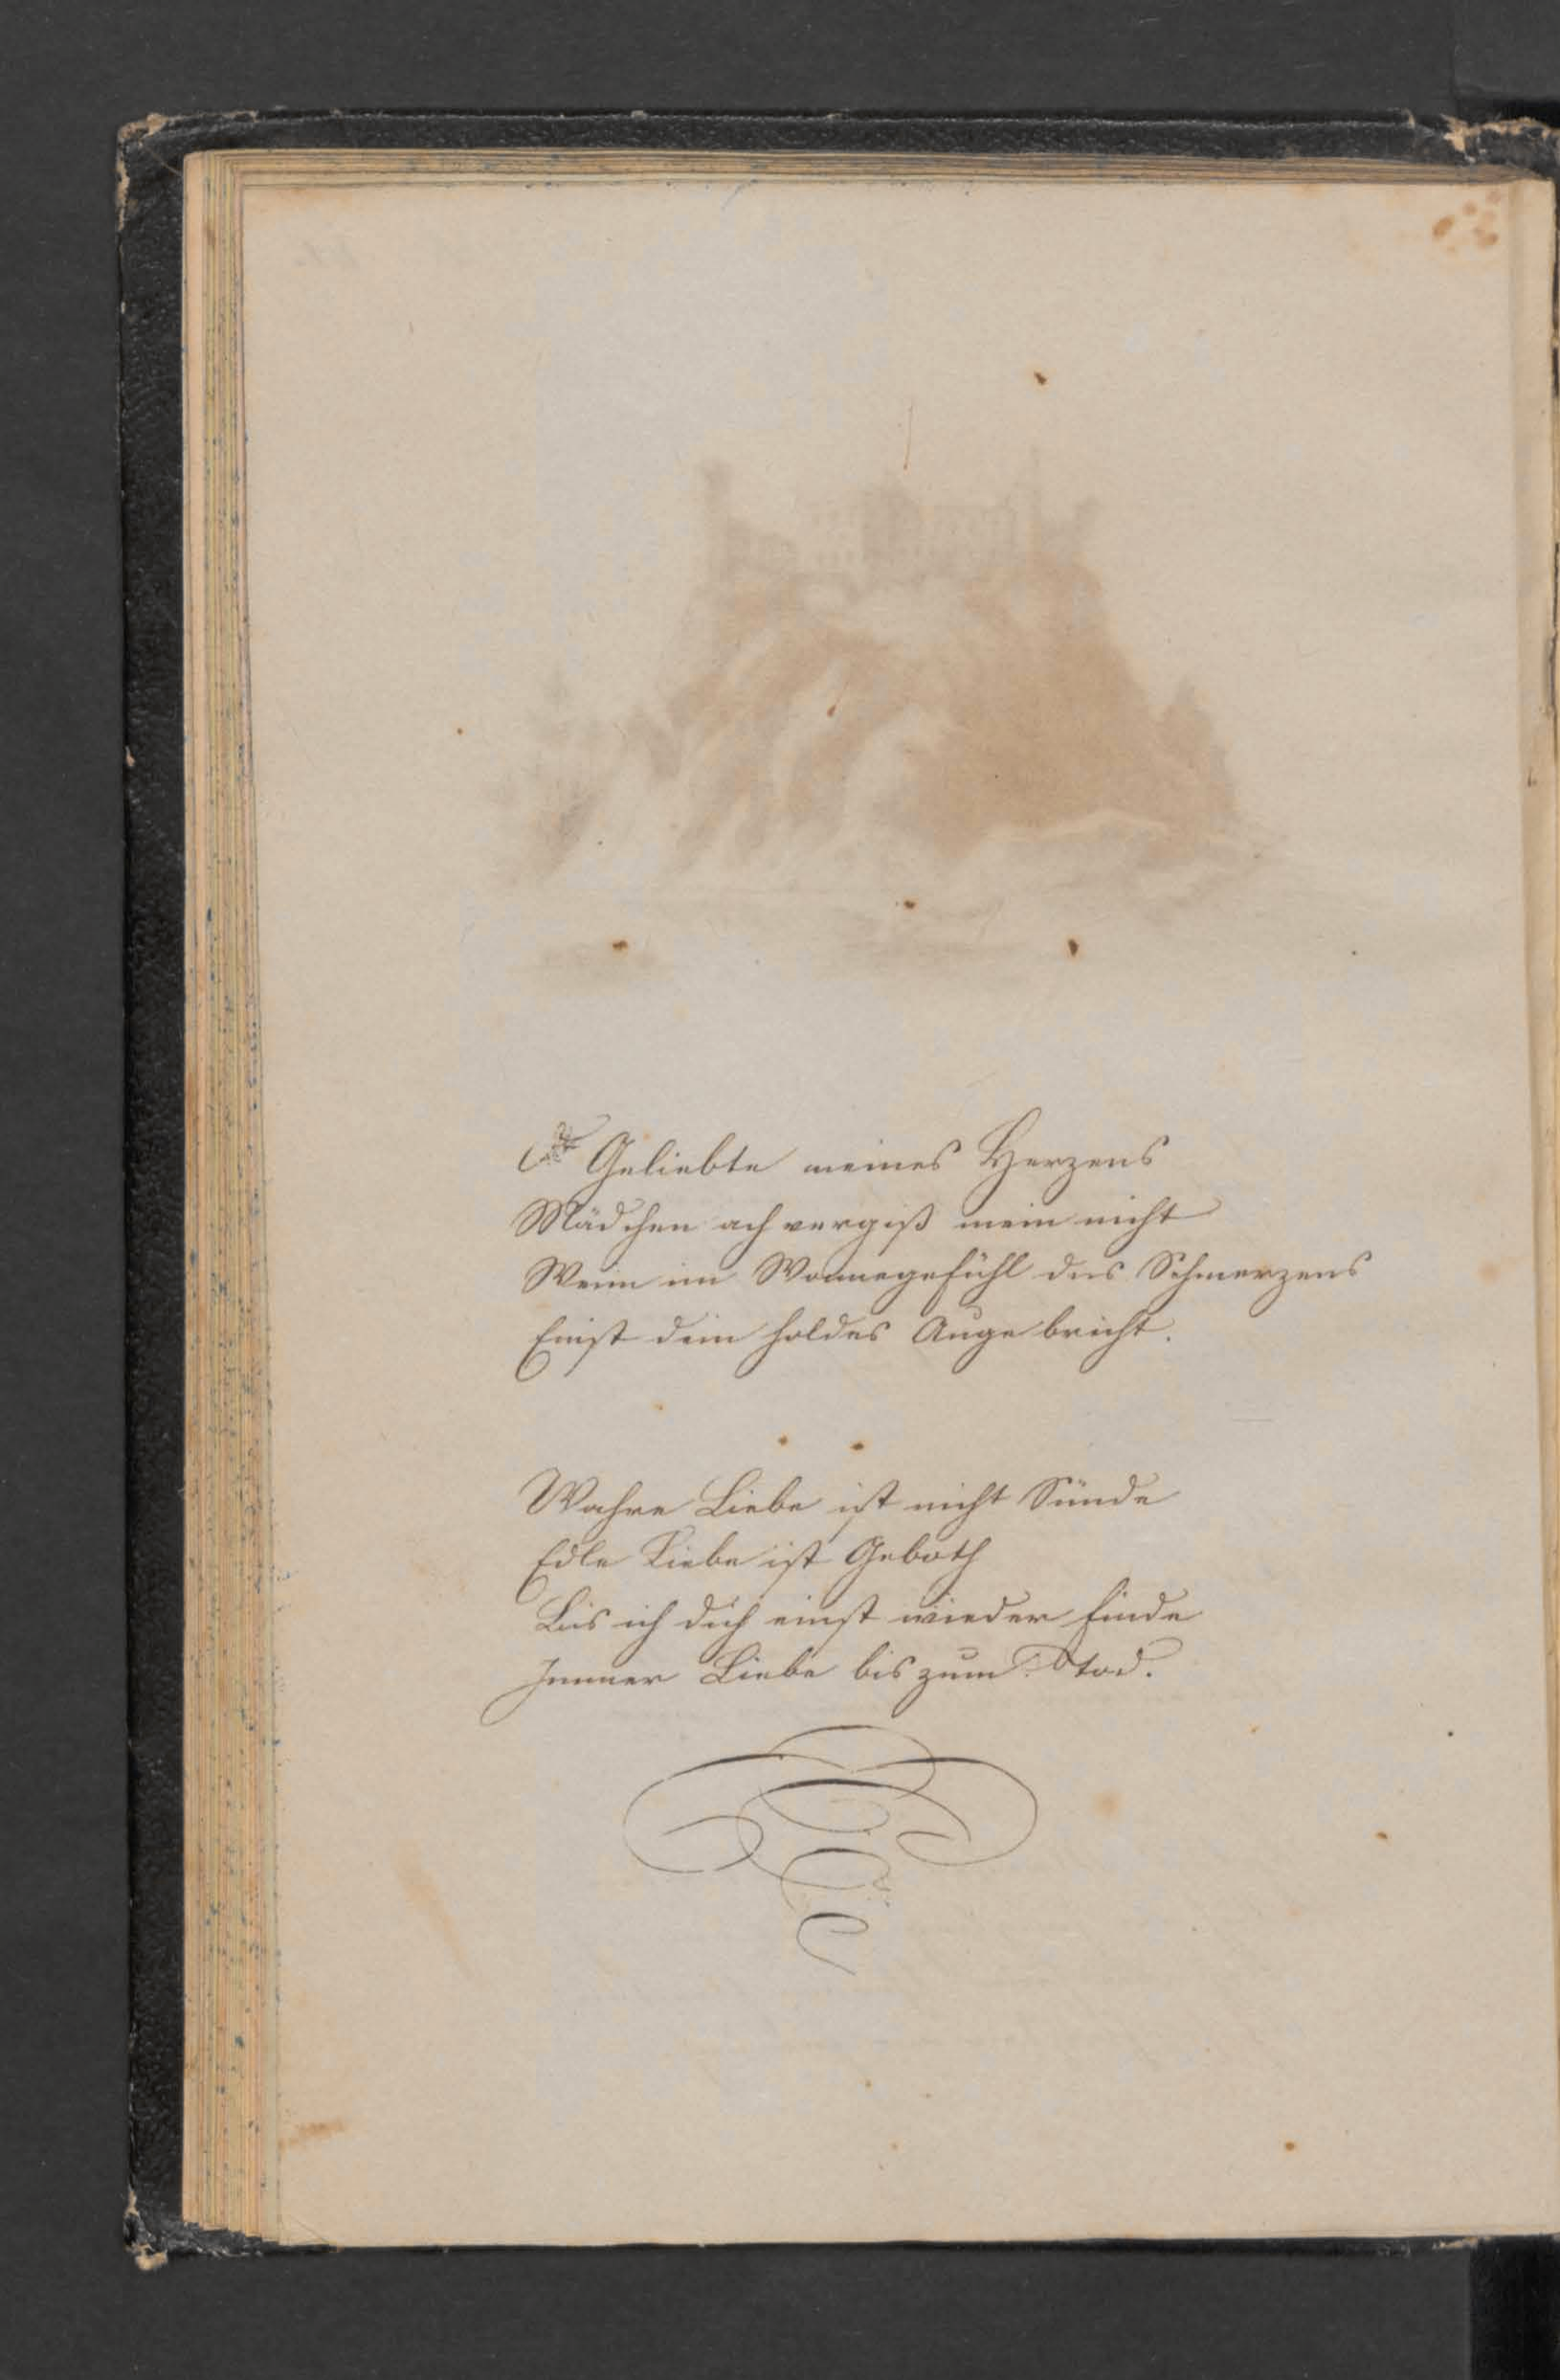 Geliebte meines Herzens
Mädchen ach vergiß mein nicht
Wenn im Wonnegefühl des Schmerzens
Einst dein holdes Auge bricht.
Wahre Liebe ist nicht Sünde
Edle Liebe ist Geboth
Bis ich dich einst wieder finde
Immer Liebe bis zum Tod.